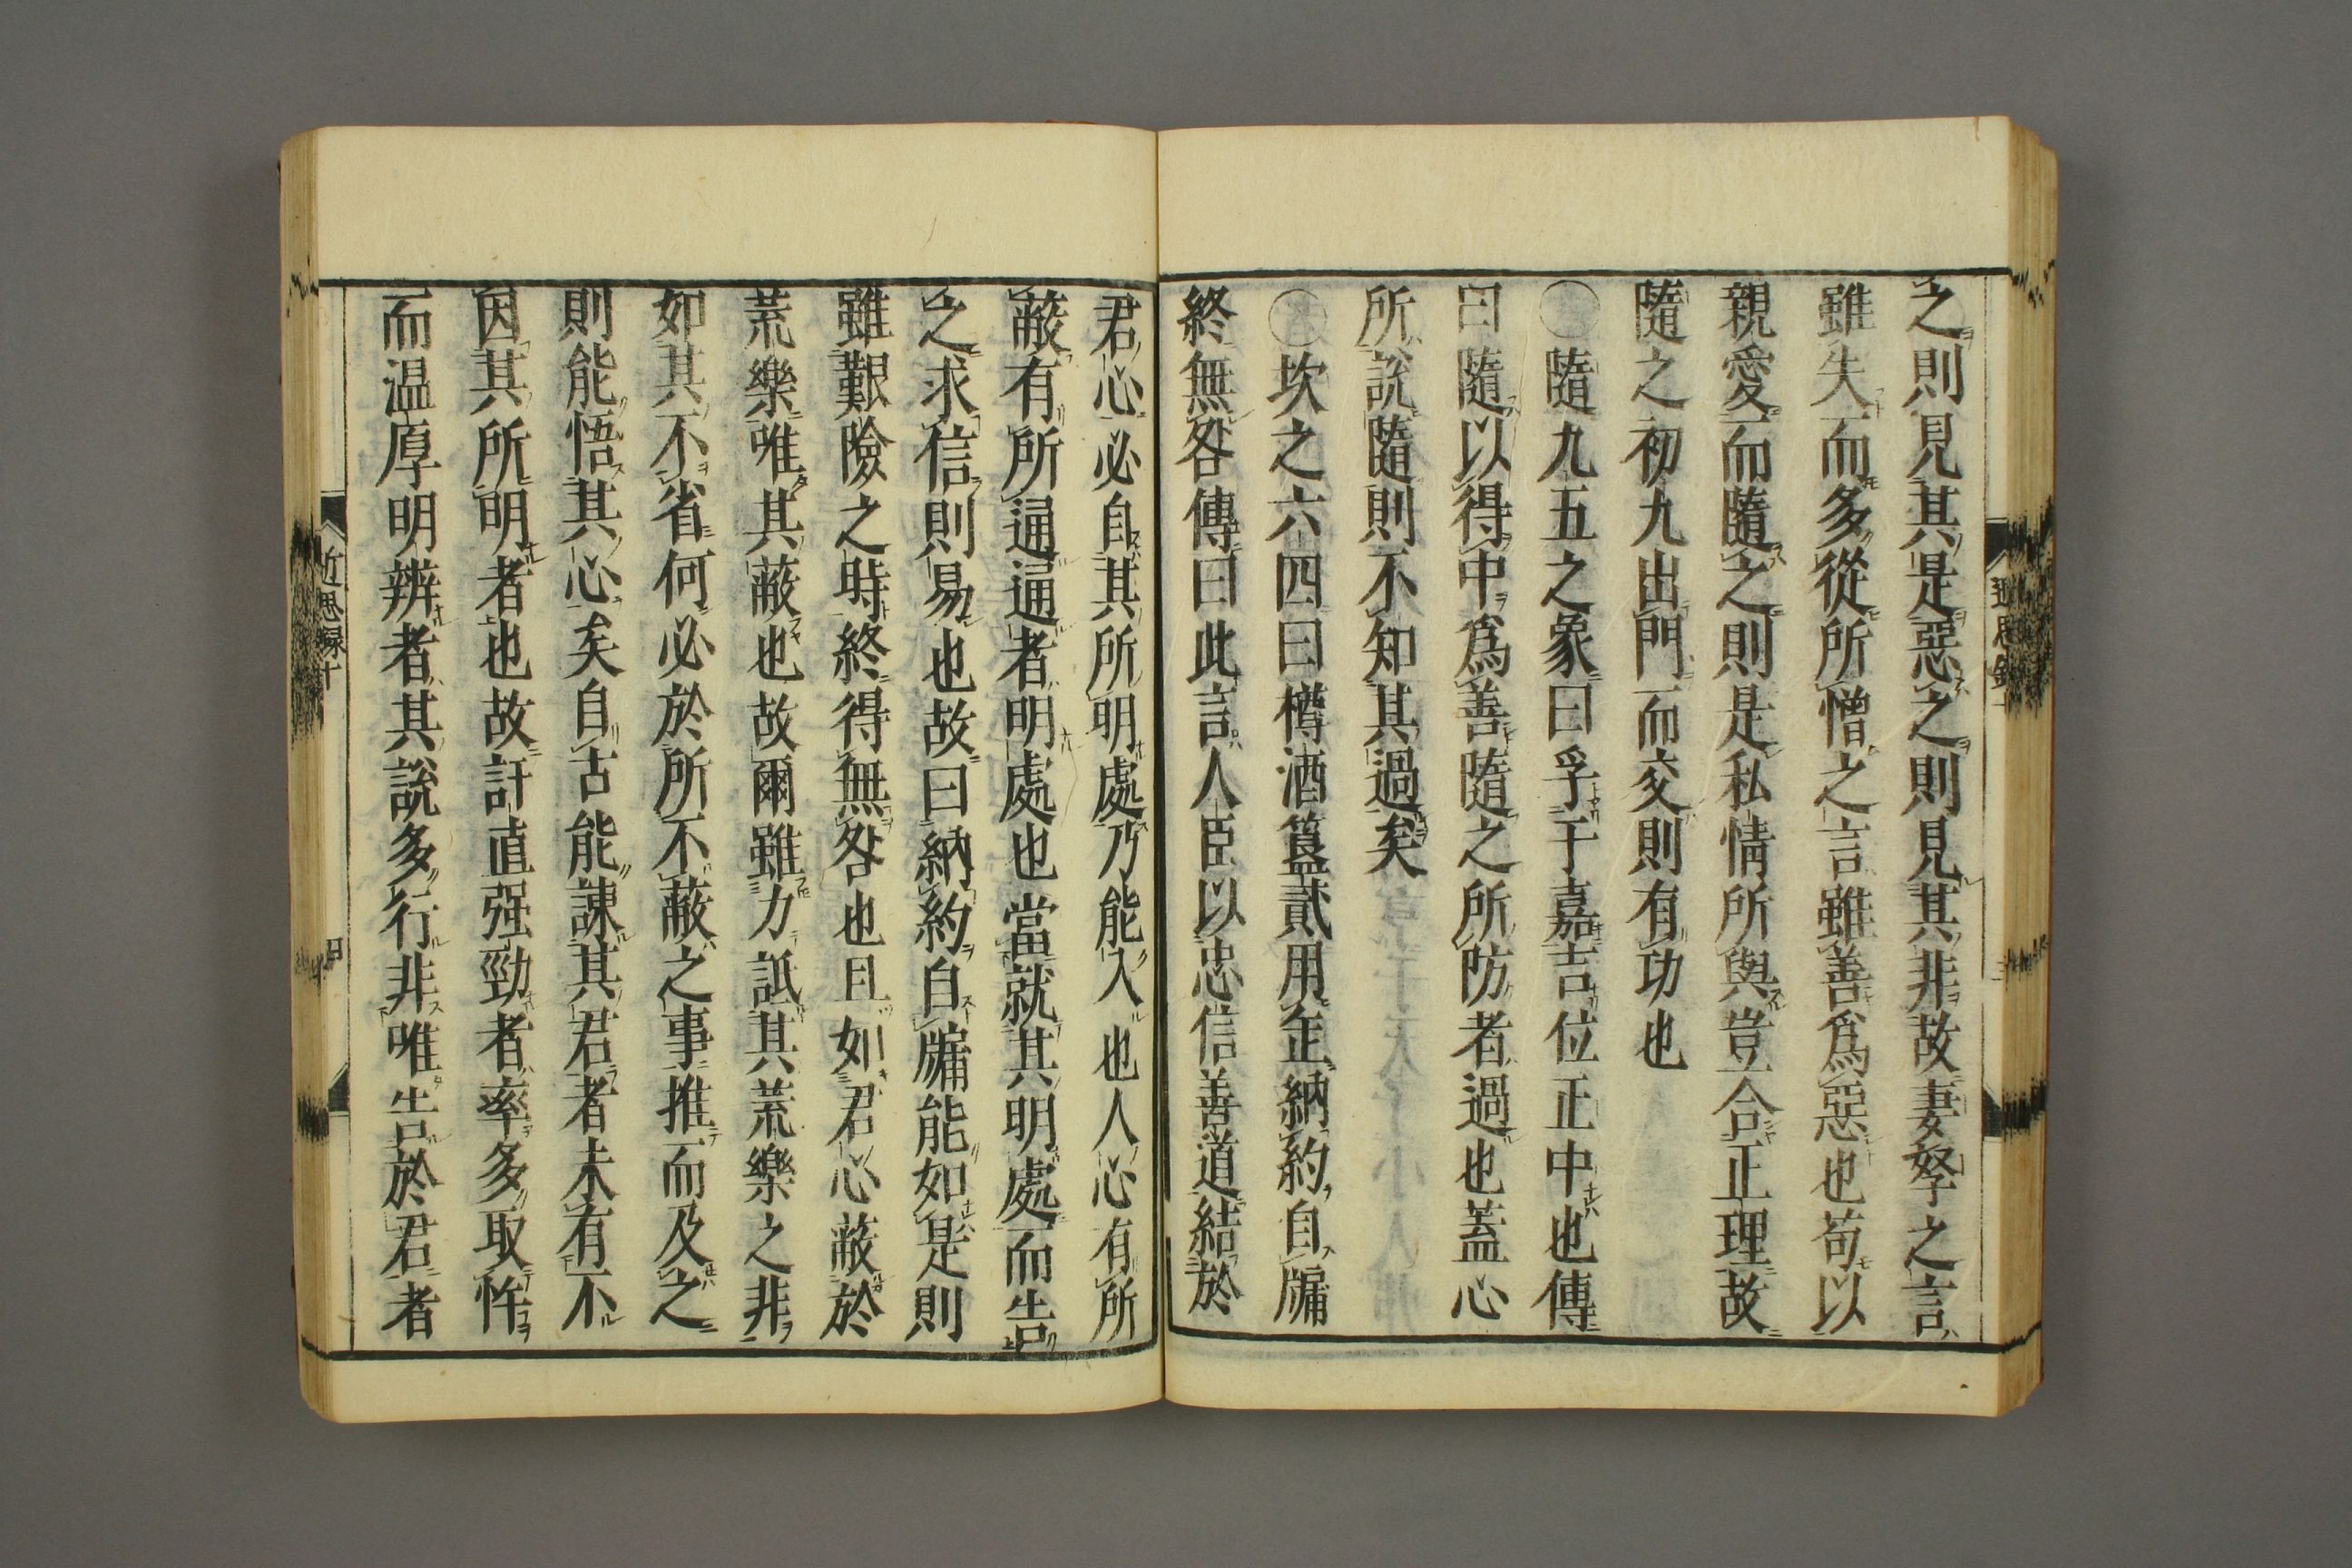 之則見其是惡之則見其非故妻孥之言
雖失而多從所憎之言雖善爲惡也苟以
親愛而隨之則是私情所與豈合正理故
隨之初九出門而交則有功也
〇隨九五之象曰孚于嘉吉位正中也傳
曰隨以得中爲善隨之所防者過也蓋心
所說隨則不知其過矣
〇坎之六四曰樽酒簋貳用缶納約自牖
終無咎傳曰此言人臣以忠信善道結於
君心必自其所明處乃能入也人心有所
蔽有所通通者明處也當就其明處而告
之求信則易也故曰納約自牖能如是則
雖艱險之時終得無咎也且如君心蔽於
荒樂唯其蔽也故爾雖力詆其荒樂之非
如其不省何必於所不蔽之事推而及之
則能悟其心矣自古能諫其君者未有不
因其所明者也故訐直强勁者率多取忤
而温厚明辨者其說多行非唯告於君者
近思録十
四